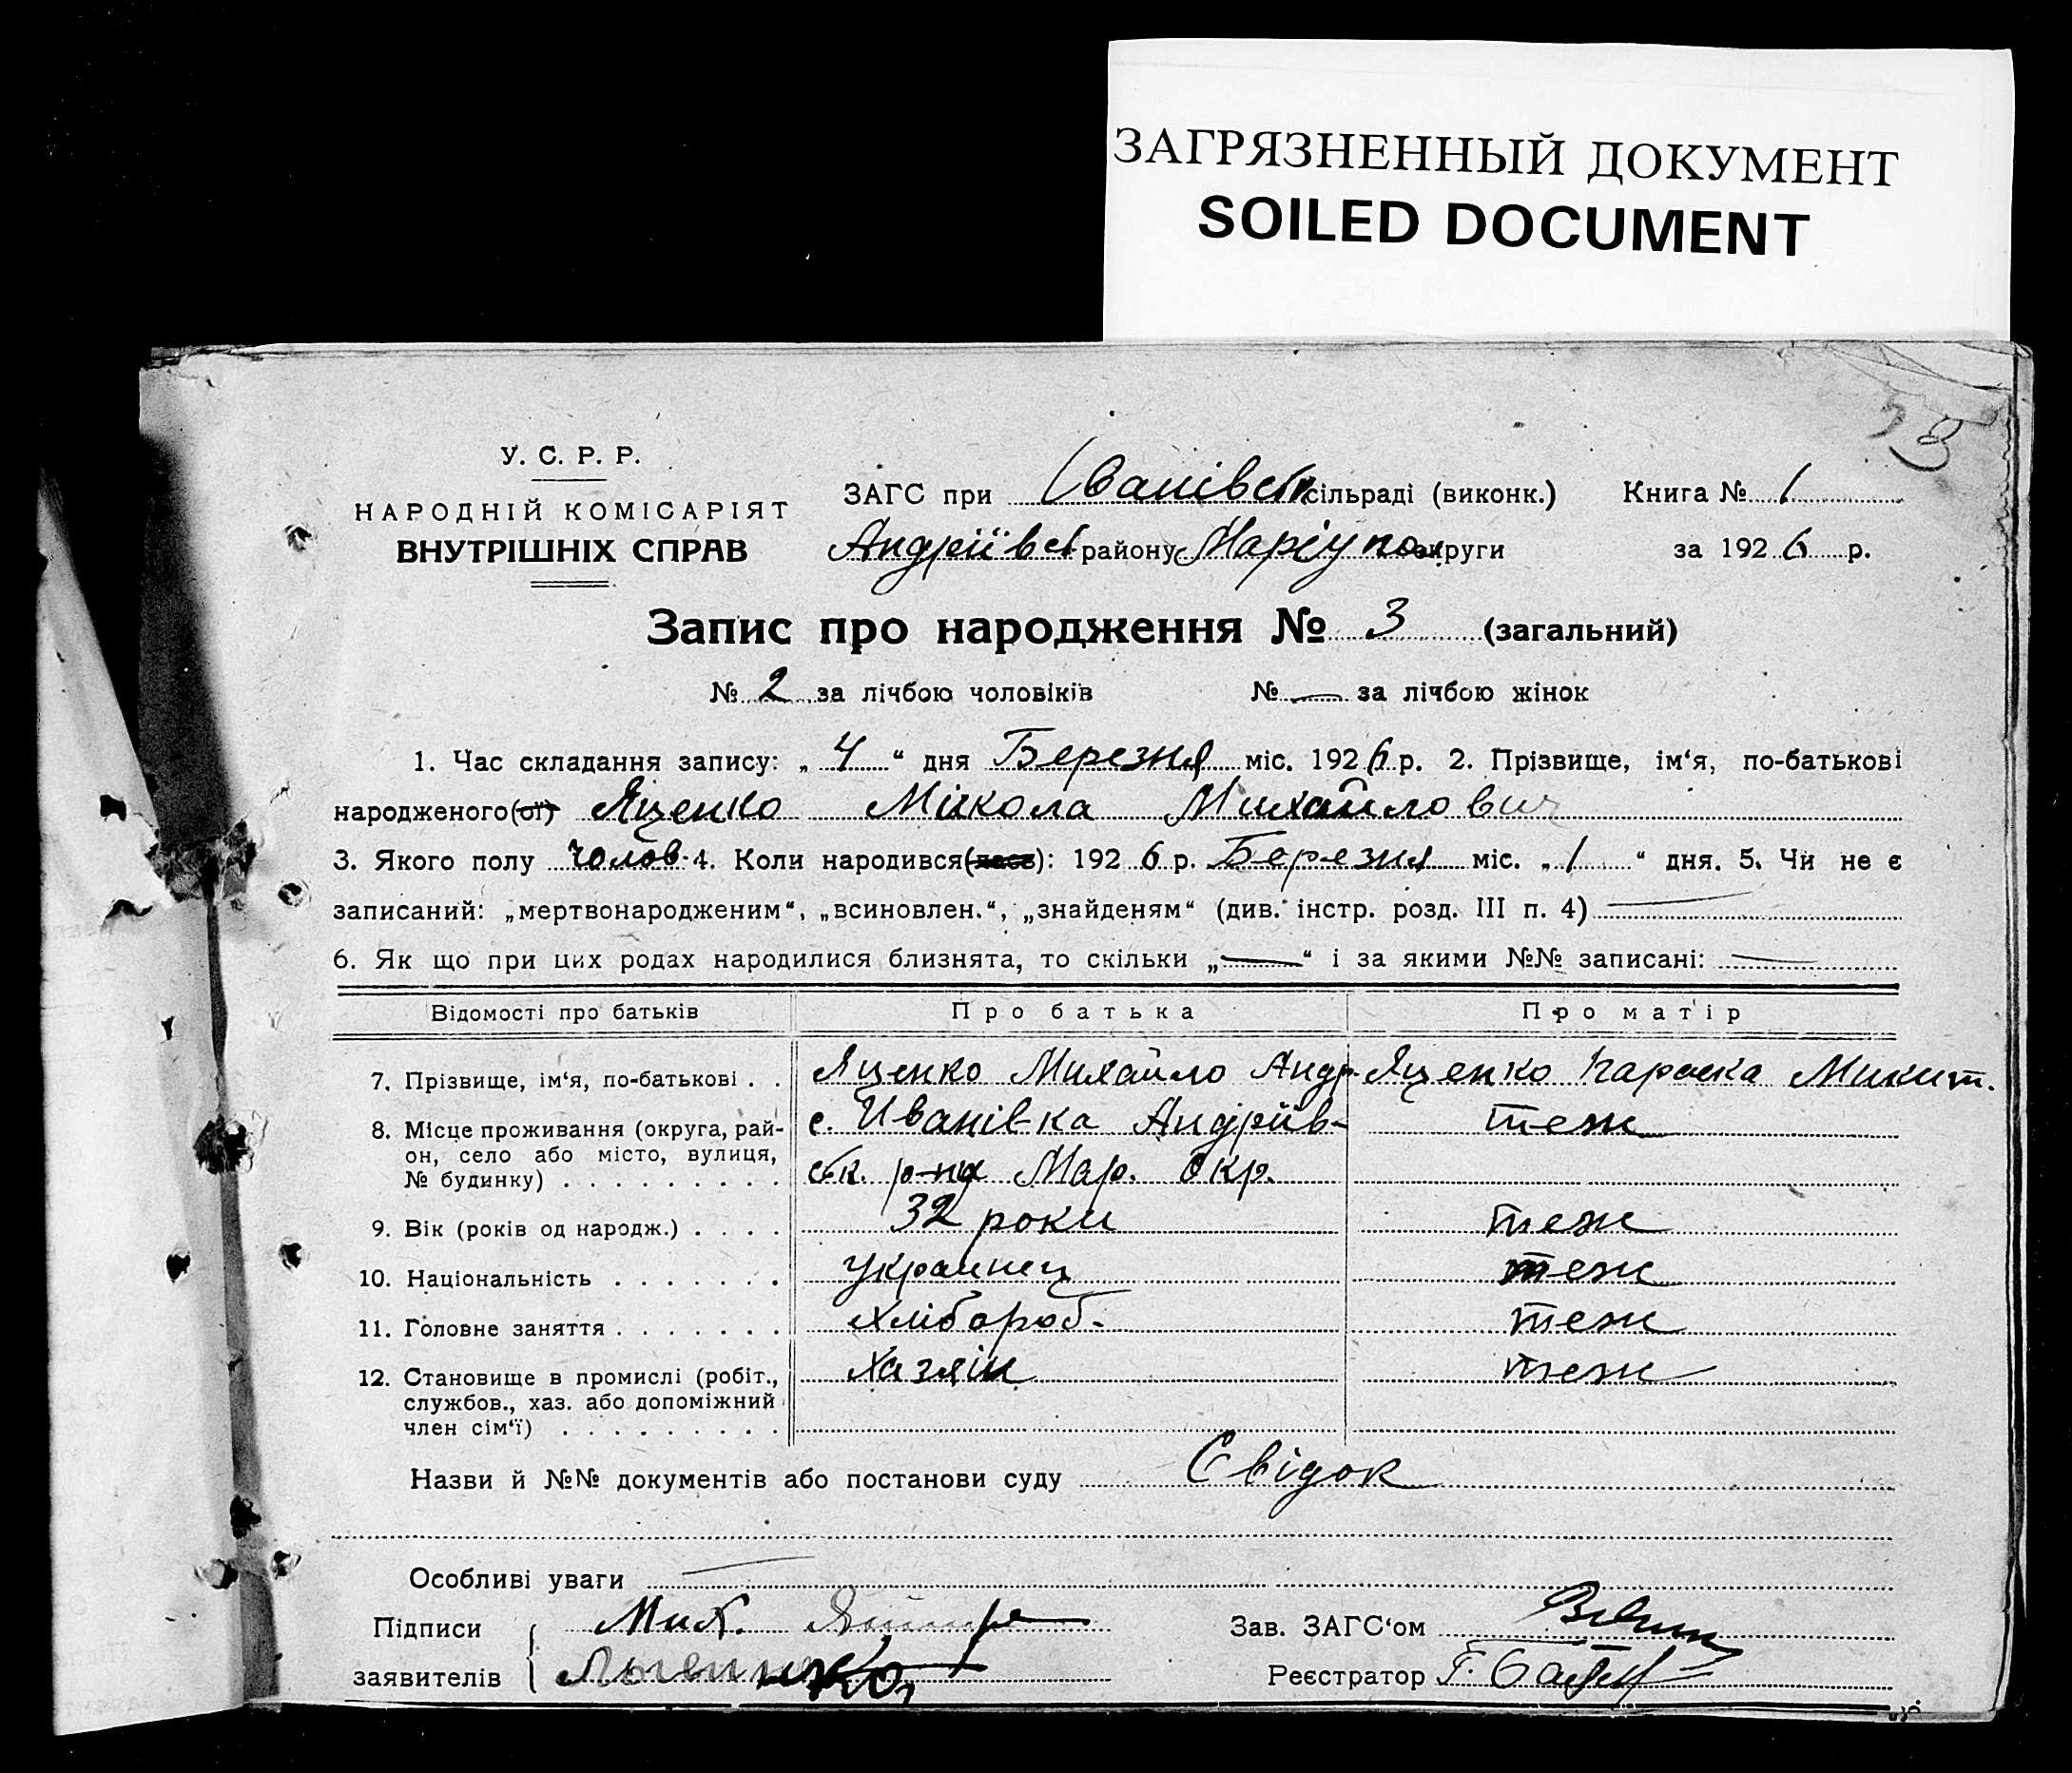 ЗАГРЯЗНЕННЫЙ ДОКУМЕНТ
SOILED DOCUMENT
У. С. Р. Р.
НАРОДНІЙ КОМІСАРІЯТ
ВНУТРІШНІХ СПРАВ
ЗАГС при Іванівськ сільраді (виконк.) Книга № 1
Андріївськ району Маріупол округи за 1926 р.
Запис про народження № 3 (загальний)
№ 2 за лічбою чоловіків № — за лічбою жінок
1. Час складання запису: „4“ дня Березня міс. 1926 р. 2. Прізвище, ім‘я, по-батькові
народженого(ої) Яценко Мікола Михайлович
3. Якого полу чолов. 4. Коли народився(лася): 1926 р. Березня міс. „1“ дня. 5. Чи не є
записаний: „мертвонародженим“, „всиновлен.“, „знайденям“ (див. інстр. розд. III п. 4) —
6. Як що при цих родах народилися близнята, то скільки „—“ і за якими №№ записані: —
Відомості про батьків Про батька Про матір
7. Прізвище, ім‘я, по-батькові . . Яценко Михайло Андр. Яценко Параска Микит.
8. Місце проживання (округа, рай- с. Иванівка Андріїв- теж
он, село або місто, вулиця, ськ. р-на Мар. Окр.
№ будинку) . . . . . . . . .
9. Вік (років од народж.) . . . . 32 роки теж
10. Національність . . . . . . . Украинец теж
11. Головне заняття . . . . . . . Хлібороб. теж
12. Становище в промислі (робіт., Хазяін теж
службов., хаз. або допоміжний
член сім‘ї) . . . . . . . . .
Назви й №№ документів або постанови суду Свідок
Особливі уваги —
Підписи Мих. Зав. ЗАГС‘ом
заявителів Реєстратор Г.